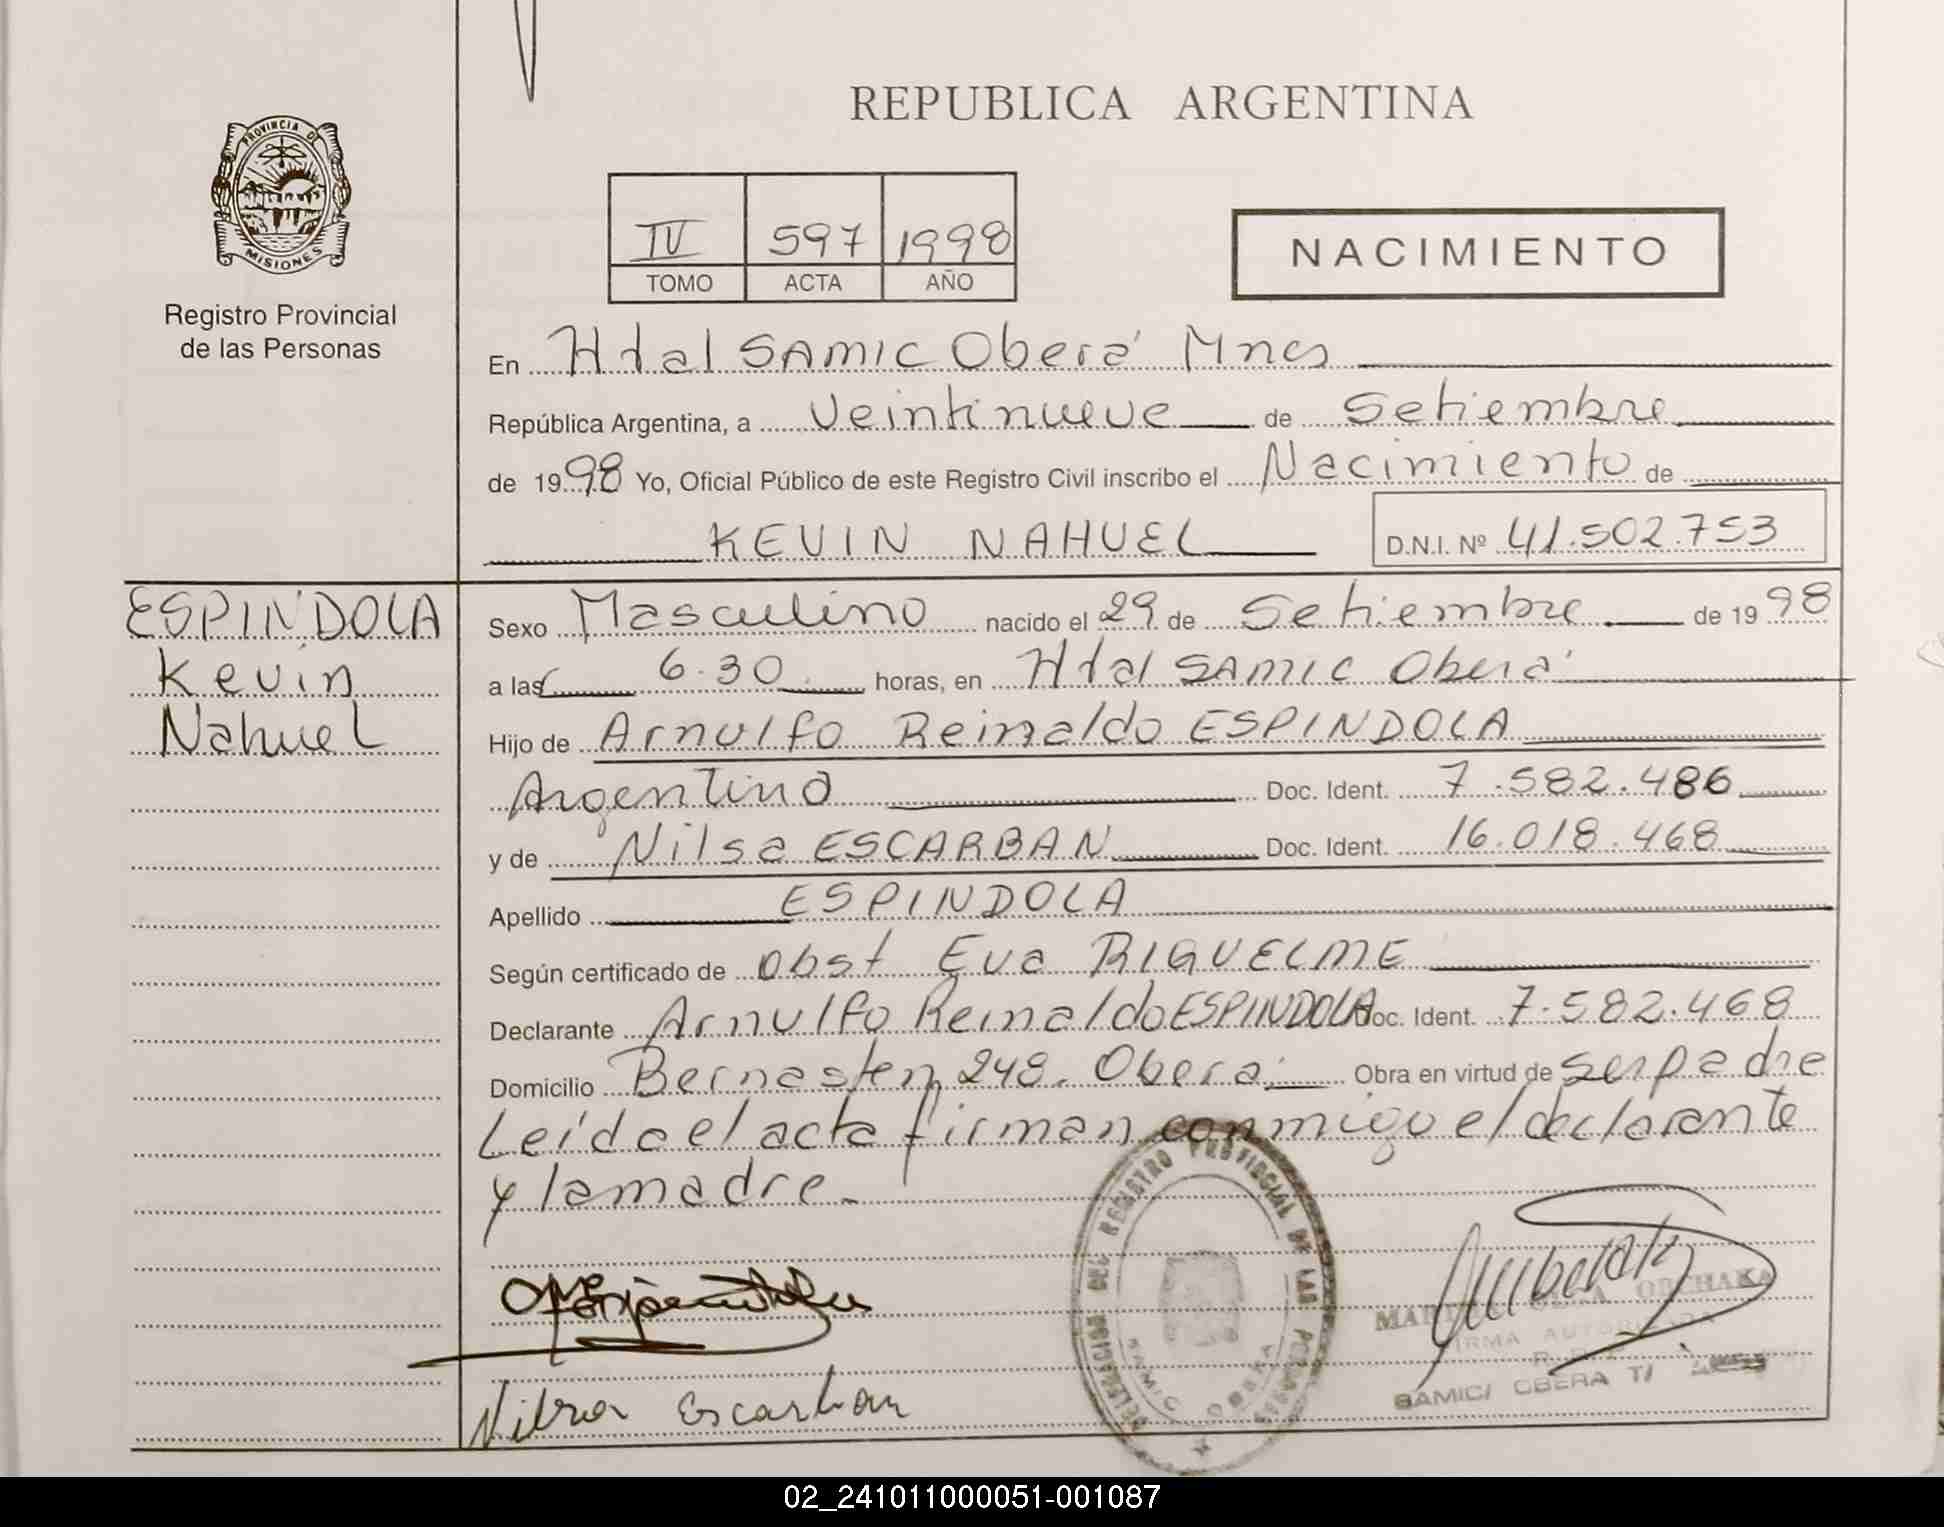 REPUBLICA ARGENTINA
PROVINCIA DE
MISIONES
Registro Provincial
de las Personas
IV 597 1998
TOMO ACTA AÑO
NACIMIENTO
En Htal SAMIC Oberá Mnes
República Argentina, a Veintinueve de Setiembre
de 1998 Yo, Oficial Público de este Registro Civil inscribo el Nacimiento de
KEVIN NAHUEL D.N.I. Nº 41.502.753
ESPINDOLA
Kevin
Nahuel
Sexo Masculino nacido el 29 de Setiembre de 1998
a las 6.30 horas, en Htal SAMIC Oberá
Hijo de Arnulfo Reinaldo ESPINDOLA
Argentino Doc. Ident. 7.582.486
y de Nilsa ESCARBAN Doc. Ident. 16.018.468
Apellido ESPINDOLA
Según certificado de Obst Eva RIQUELME
Declarante Arnulfo Reinaldo ESPINDOLA Doc. Ident. 7.582.468
Domicilio Bernasten 248. Oberá Obra en virtud de ser padre
Leída el acta firman conmigo el declarante
y la madre.
DELEGACION DEL REGISTRO PROVINCIAL DE LAS PERSONAS
SAMIC OBERA
OLGA
FIRMA AUTORIZADA
SAMIC/ OBERA
Nilsa Escarban
02_241011000051-001087